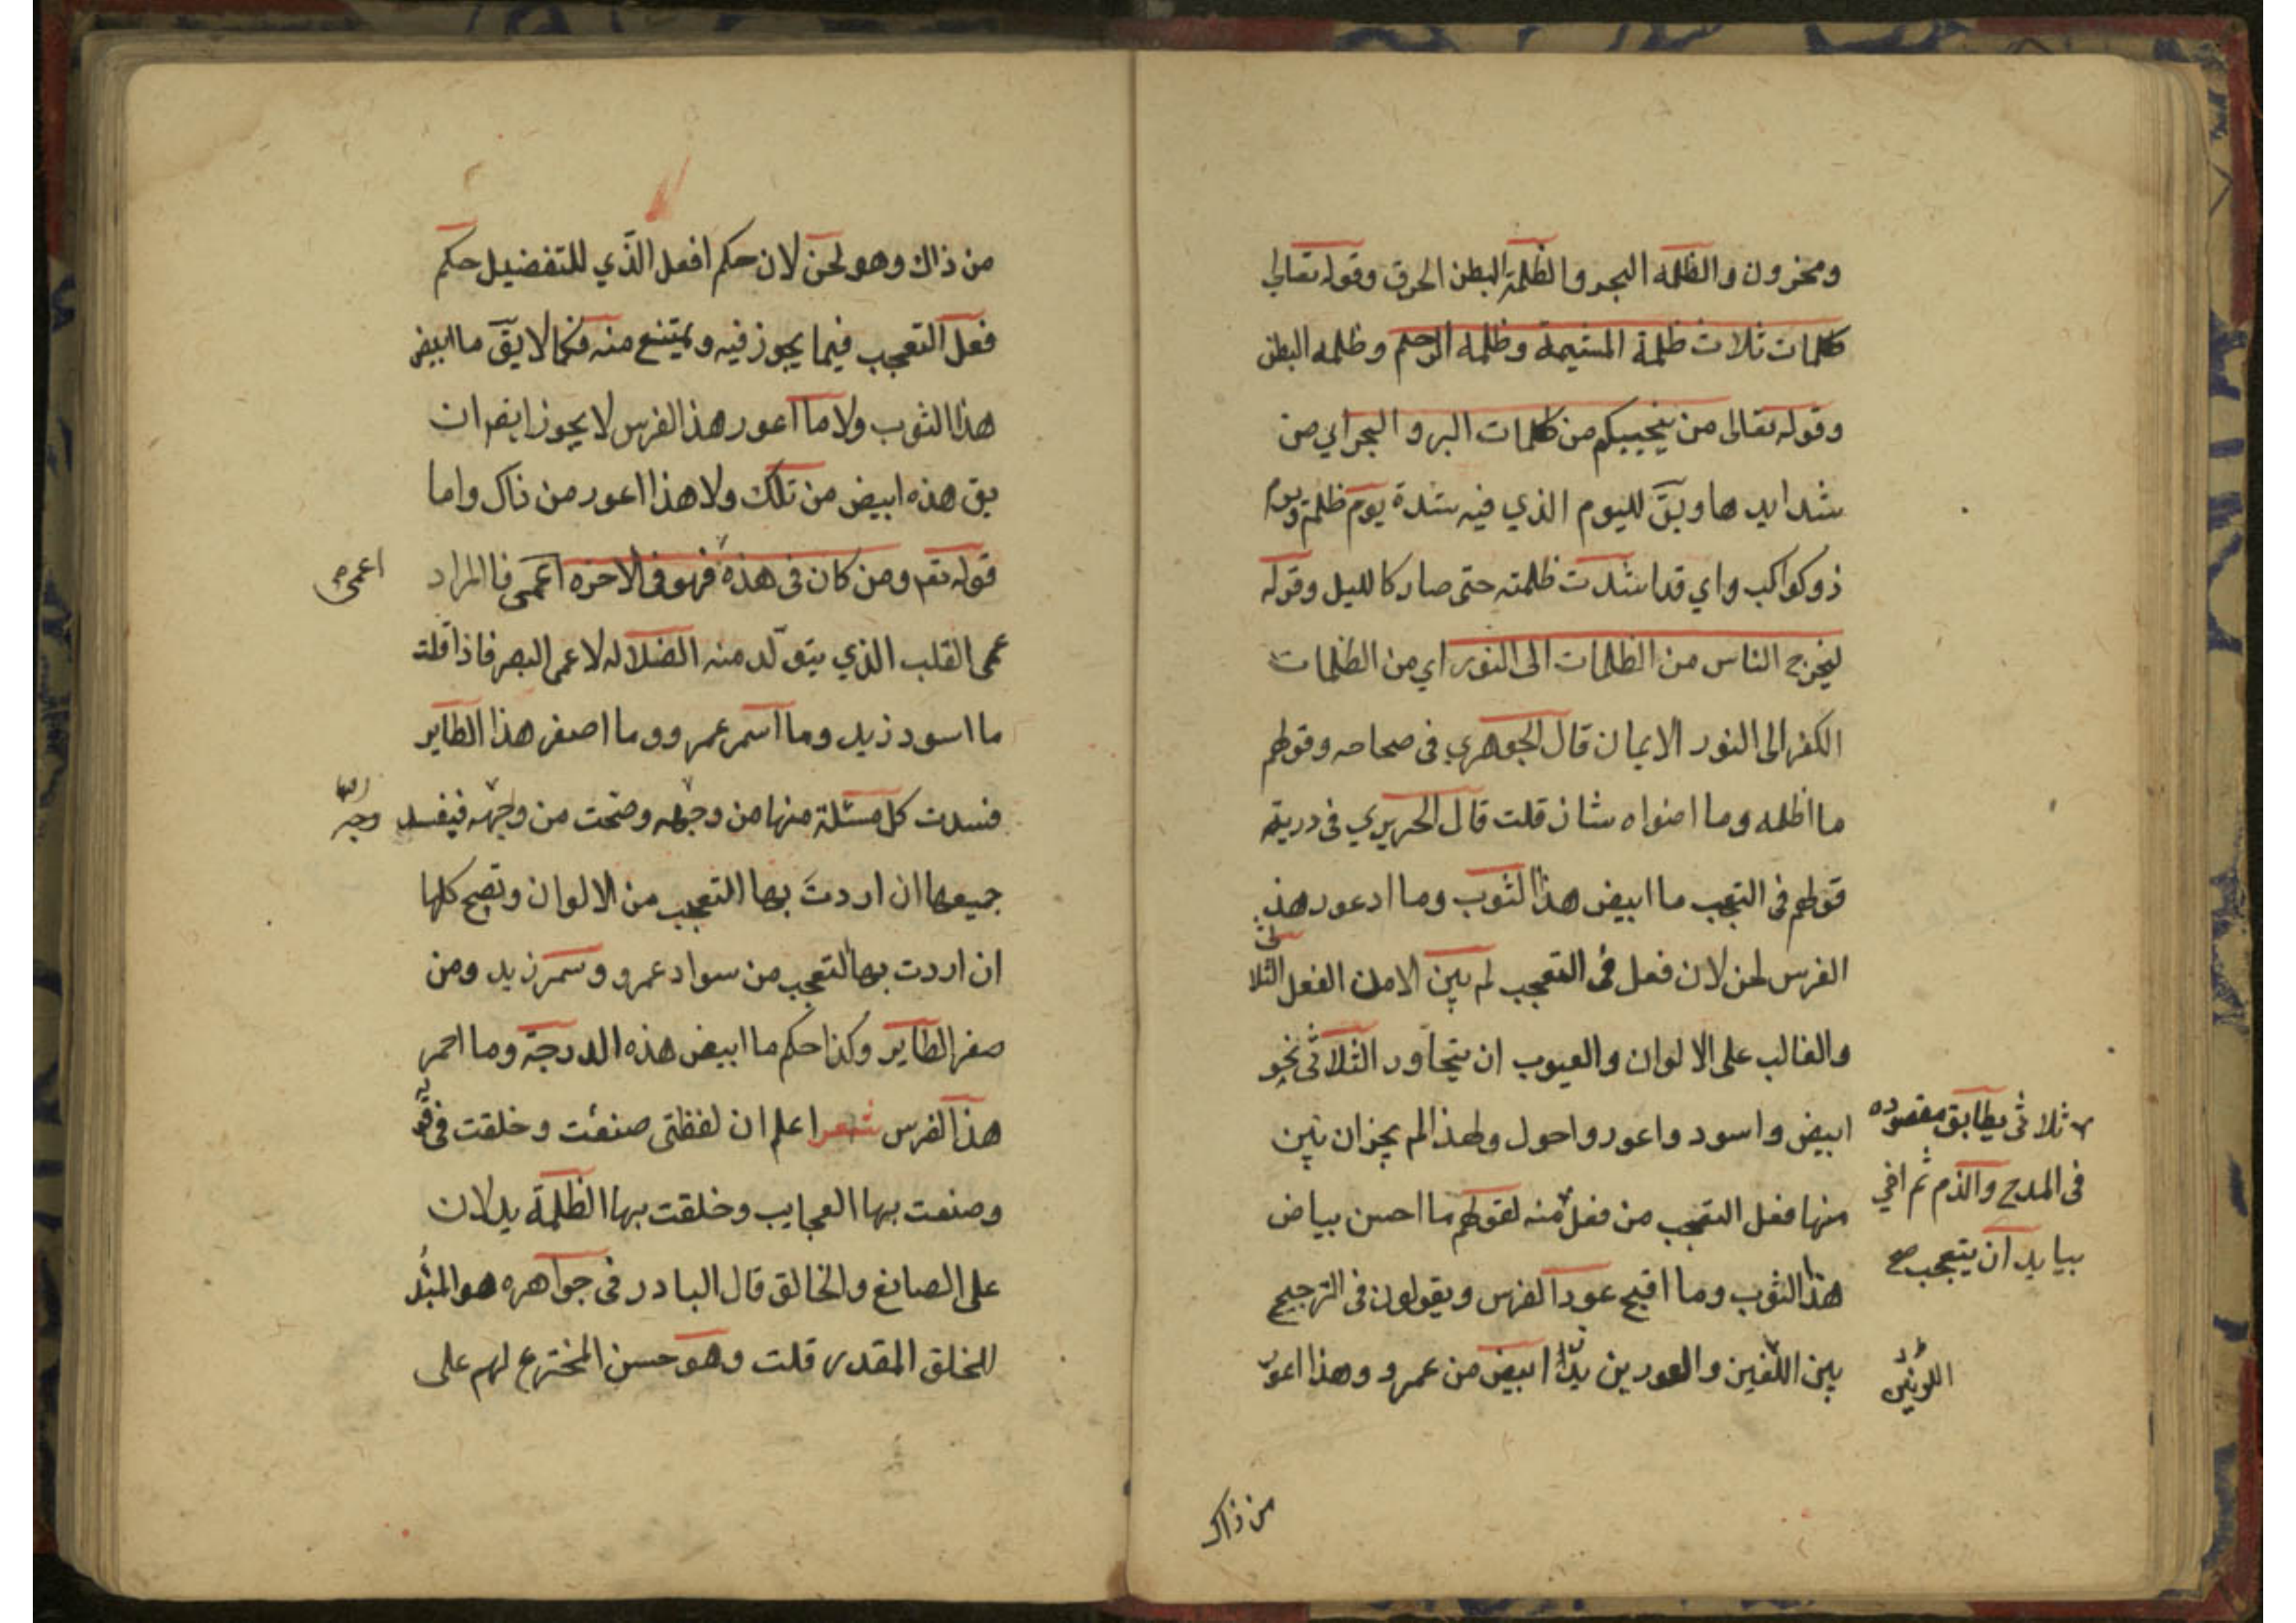 ومخزون والظلمه البحر والظلمة البطن الحرق وقوله تعالى
ظلمات ثلاث ظلمة المشيمة وظلمة الرحم وظلمه البطن
وقوله تعالى من ينجيبكم من ظلمات البر والبحر اي من
شدايدها ويق لليوم الذي فيه شدة يوم ظلمة ويوم
ذو كواكب واي قد اشدت ظلمته حتى صار كالليل وقوله
ليخرج الناس من الظلمات الى النور اي من الظلمات
الكفر الى النور الايمان قال الجوهري فى صحاحه وقولهم
ما اظلمه وما اضواه شاذ قلت قال الحريري فى دريته
قولهم فى التعجب ما ابيض هذا الثوب وما ادعور هذه
الفرس لحن لان فعل فى التعجب لم يبن الا من الفعل الثلاثى
والغالب على الالوان والعيوب ان يتجاور الثلاثى نحو
ابيض واسود واعور واحول ولهذا لم يجز ان يبن
منها فعل التعجب من فعل منه لقولهم ما احسن بياض
هذا الثوب وما اقبح عور الفرس ويقولون فى الترجيح
بين اللفين والعورين زيد ابيض من عمرو وهذا اعور
ثلاثى يطابق مقصوده
فى المدح والذم ثم افي
بيا يد ان يتعجب صح
اللونين
من ذاك
من ذاك وهو لحن لان حكم افعل الذي للتفضيل حكم
فعل التعجب فيما يجوز فيه ويمتنع منه فكما لا يق ما ابيض
هذا الثوب ولا ما اعور هذا الفرس لا يجوز ايضا ان
يق هذه ابيض من تلك ولا هذا اعور من ذاك واما
قوله تعم ومن كان فى هذه فهو فى الاخره اعمى فا المراد
اعمى صح
عمى القلب الذي يتولد منه الضلاله لا عمى البصر فاذا قلت
ما اسود زيد وما اسمر عمرو وما اصفر هذا الطاير
فسدت كل مسئلة منها من وجه وصحت من وجه فيفسد
وجه
جميعها ان اردت بها التعجب من الالوان وتصح كلها
ان اردت بها التعجب من سواد عمرو وسمر زيد ومن
صفر الطاير وكذا حكم ما ابيض هذه الدرجة وما احمر
هذا الفرس شعر اعلم ان لفظتى صنعت وخلقت فى
وصنعت بها العجايب وخلقت بها الظلمة يدلان
على الصانع والخالق قال البادر فى جواهره هو المبد
للخلق المقدر قلت وهو حسن المخترع لهم على